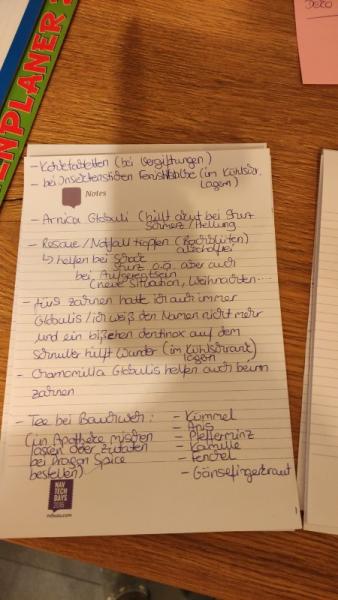 ENPLANER
Deko
- Kohletabletten (bei Vergiftungen)
- bei Insektenstichen Fenistil (im Kühlschr.
lagern)
Notes
- Arnica Globuli (hilft akut bei Sturz
Schmerz/Heilung
- Rescue/Notfall Tropfen (Bachblüten)
alkoholfrei
↳ helfen bei Schock
Sturz o.ä. aber auch
bei Aufgeregtsein
(neue Situation, Weihnachten...
- fürs zahnen hatte ich auch immer
Globulis/ich weiß den Namen nicht mehr
und ein bißchen dentinox auf dem
Schnuller hilft Wunder (im Kühlschrank)
lagern
- Chamomilla Globulis helfen auch beim
zahnen
- Tee bei Bauchweh:
(in Apotheke mischen
lassen oder Zutaten
bei Dragon Spice
bestellen)
- Kümmel
- Anis
- Pfefferminz
- Kamille
- Fenchel
- Gänsefingerkraut
NAV
TECH
DAYS
2016